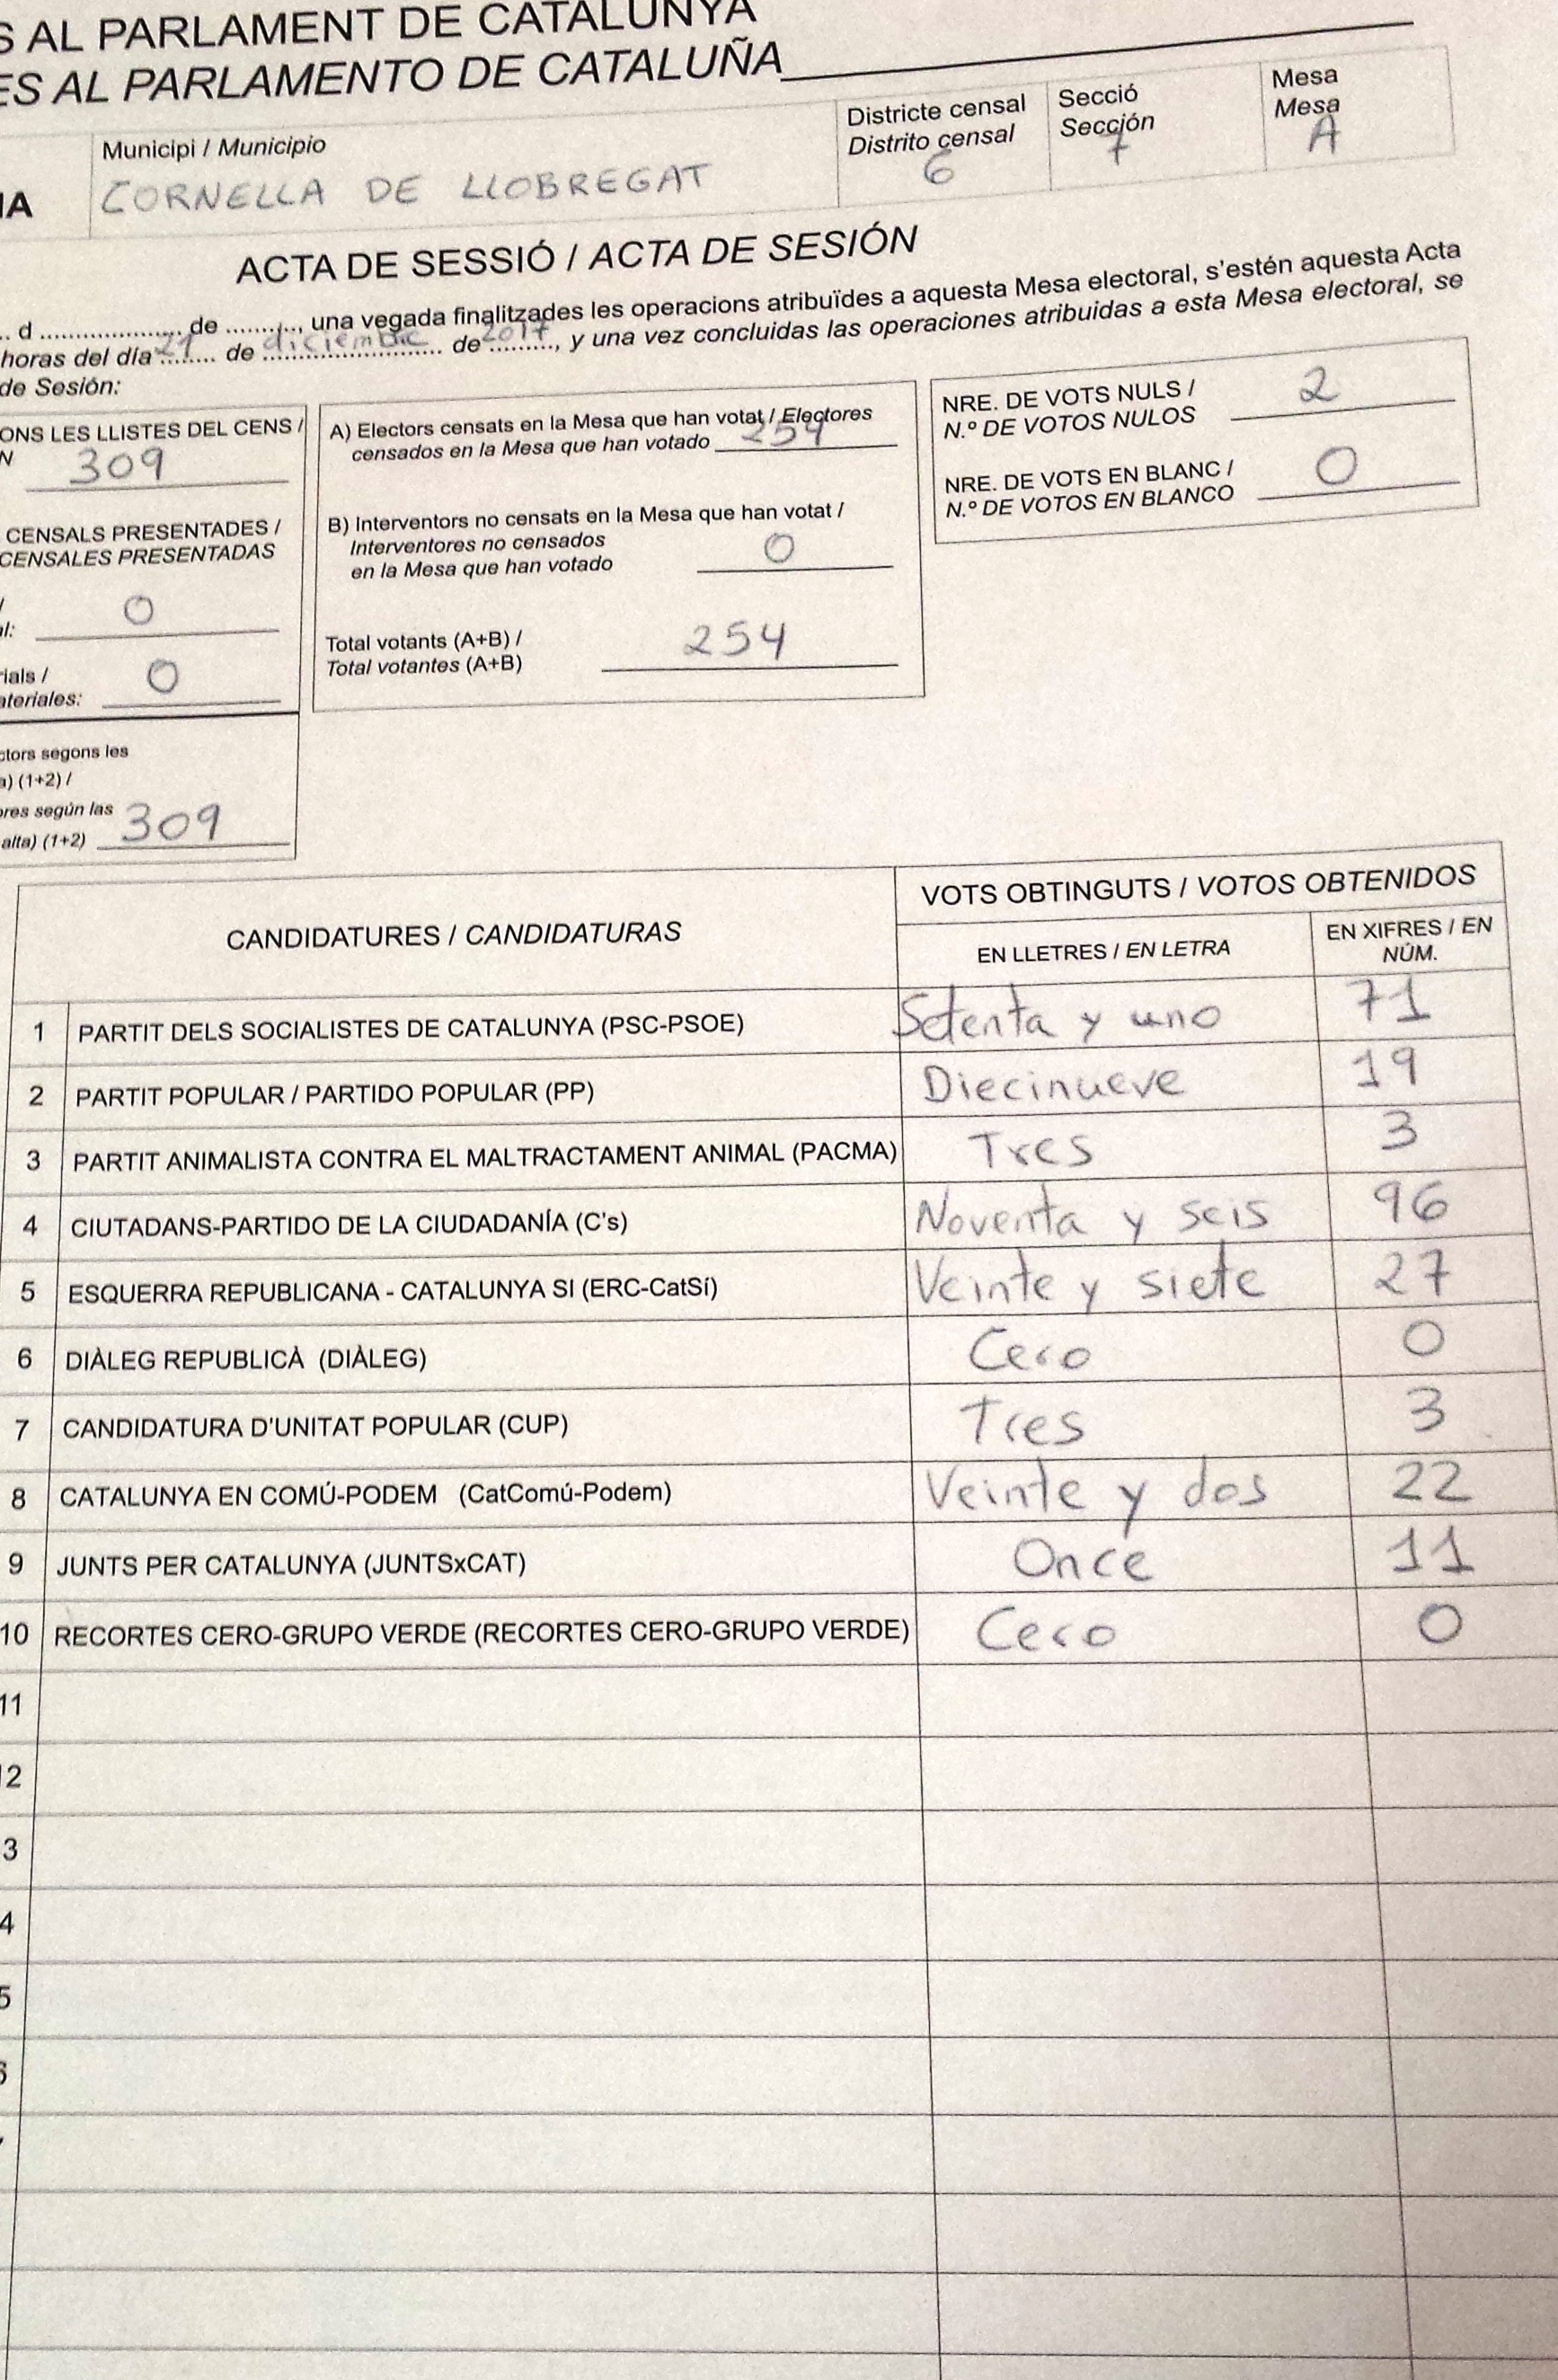 S AL PARLAMENT DE CATALUNYA
ES AL PARLAMENTO DE CATALUÑA
Municipi / Municipio
CORNELLA DE LLOBREGAT
Districte censal
Distrito censal
6
Secció
Sección
7
Mesa
Mesa
A
IA
ACTA DE SESSIÓ / ACTA DE SESIÓN
.. d .................... de .........., una vegada finalitzades les operacions atribuïdes a aquesta Mesa electoral, s'estén aquesta Acta
horas del día 21 de diciembre de 2017, y una vez concluidas las operaciones atribuidas a esta Mesa electoral, se
de Sesión:
ONS LES LLISTES DEL CENS /
N 309
CENSALS PRESENTADES /
CENSALES PRESENTADAS
/
al: 0
rials /
ateriales: 0
ctors segons les
a) (1+2) /
ores según las
alta) (1+2) 309
A) Electors censats en la Mesa que han votat / Electores
censados en la Mesa que han votado 254
B) Interventors no censats en la Mesa que han votat /
Interventores no censados
en la Mesa que han votado 0
Total votants (A+B) /
Total votantes (A+B) 254
NRE. DE VOTS NULS /
N.º DE VOTOS NULOS 2
NRE. DE VOTS EN BLANC /
N.º DE VOTOS EN BLANCO 0
CANDIDATURES / CANDIDATURAS
VOTS OBTINGUTS / VOTOS OBTENIDOS
EN LLETRES / EN LETRA
EN XIFRES / EN
NÚM.
1 PARTIT DELS SOCIALISTES DE CATALUNYA (PSC-PSOE) Setenta y uno 71
2 PARTIT POPULAR / PARTIDO POPULAR (PP) Diecinueve 19
3 PARTIT ANIMALISTA CONTRA EL MALTRACTAMENT ANIMAL (PACMA) Tres 3
4 CIUTADANS-PARTIDO DE LA CIUDADANÍA (C's) Noventa y seis 96
5 ESQUERRA REPUBLICANA - CATALUNYA SI (ERC-CatSí) Veinte y siete 27
6 DIÀLEG REPUBLICÀ (DIÀLEG) Cero 0
7 CANDIDATURA D'UNITAT POPULAR (CUP) Tres 3
8 CATALUNYA EN COMÚ-PODEM (CatComú-Podem) Veinte y dos 22
9 JUNTS PER CATALUNYA (JUNTSxCAT) Once 11
10 RECORTES CERO-GRUPO VERDE (RECORTES CERO-GRUPO VERDE) Cero 0
11
12
3
4
5
6